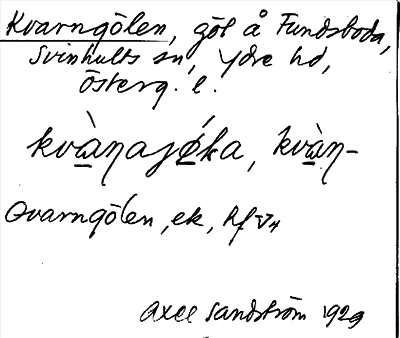 Kvarngölen, göl å Fundsboda,
Svinhults sn, Ydre hd,
Österg. l.
kvànajǿka, kvàn-
Qvarngölen, ek,
Axel Sandström 1929